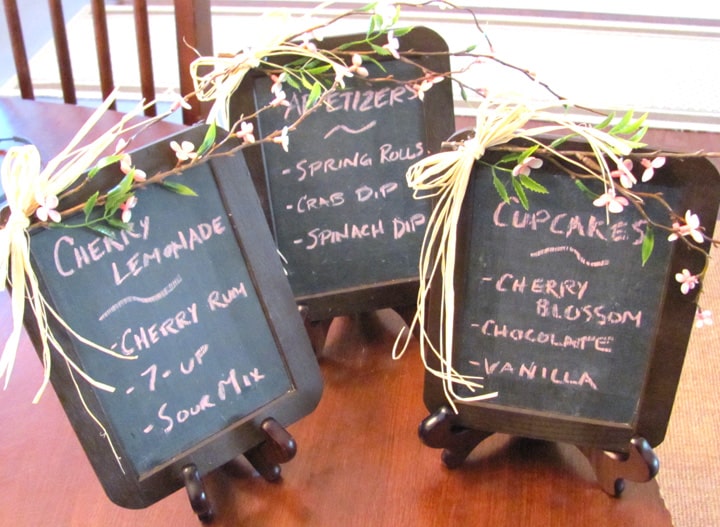 Cherry
Lemonade
- Cherry Rum
- 7-up
- Sour Mix
Appetizers
- Spring Rolls
- Crab Dip
- Spinach Dip
Cupcakes
- Cherry
Blossom
- Chocolate
- Vanilla